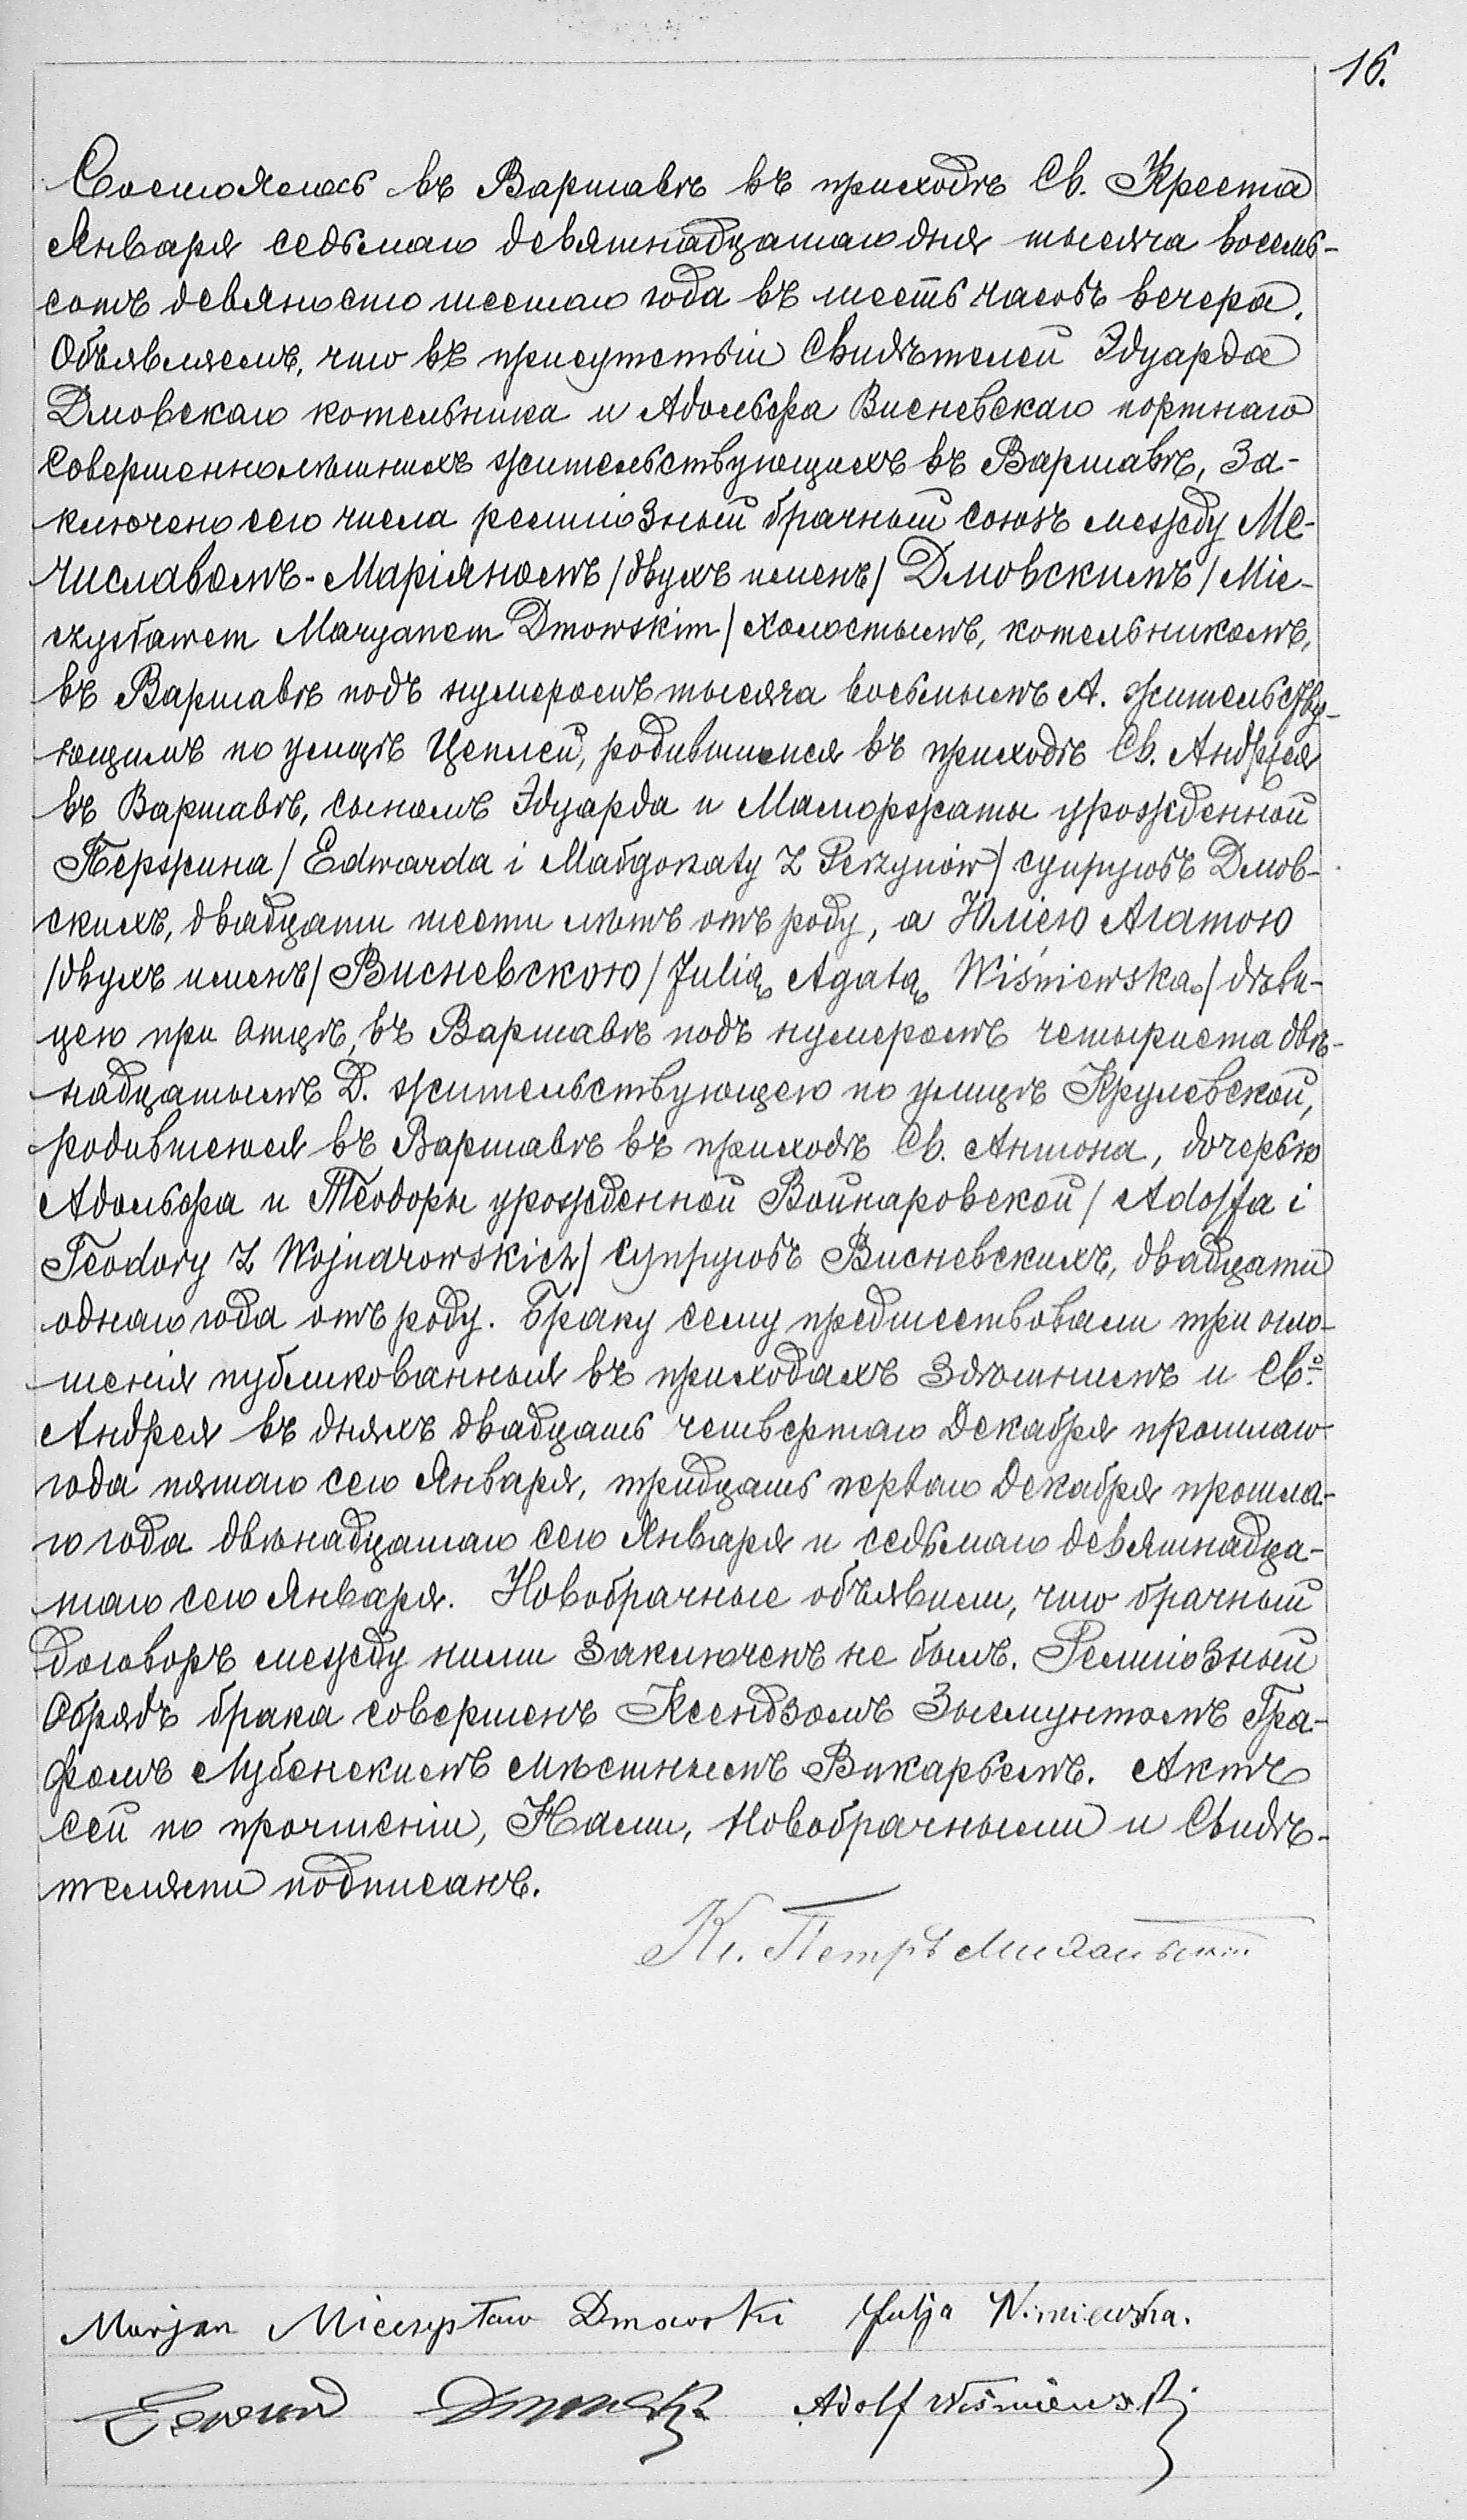 16.
Состоялось въ Варшавѣ въ приходѣ Св. Креста
Января седьмаго девятнадцатаго дня тысяча восемь-
сотъ девяносто шестаго года въ шесть часовъ вечера.
Объявляемъ, что въ присутствіи Свидѣтелей Эдуарда
Дмовскаго котельника и Адольфа Висневскаго портнаго
совершеннолѣтнихъ жительствующихъ въ Варшавѣ, За-
ключено сего числа религіозный брачный союзъ между Ме-
числавомъ-Маріяномъ /двухъ именъ/ Дмовскимъ /Mie-
czysławem Maryanem Dmowskim/ холостымъ, котельникомъ,
въ Варшавѣ подъ нумеромъ тысяча восьмымъ А. жительству-
ющимъ по улицѣ Цеплей, родившимся въ приходѣ Св. Андрея
въ Варшавѣ, сыномъ Эдуарда и Малгоржаты урожденной
Пержина /Edwarda i Małgorzaty z Perzynów/ супруговъ Дмов-
скихъ, двадцати шести лѣтъ отъ роду, а Юліею Агатою
/двухъ именъ/ Висневскою /Julią Agatą Wiśniewską/ дѣви-
цею при Отцѣ, въ Варшавѣ подъ нумеромъ четыриста двѣ-
надцатымъ Д. жительствующею по улицѣ Крулевской,
родившеюся въ Варшавѣ въ приходѣ Св. Антона, дочерью
Адольфа и Теодоры урожденной Войнаровской /Adolfa i
Teodory z Wojnarowskich/ супруговъ Висневскихъ, двадцати
однаго года отъ роду. Браку сему предшествовали три огло-
шенія публикованныя въ приходахъ Здѣшнемъ и Св.о
Андрея въ дняхъ двадцать четвертаго Декабря прошлаго
года пятаго сего Января, тридцать перваго Декабря прошла-
го года двѣнадцатаго сего Января и седьмаго девятнадца-
таго сего Января. Новобрачные объявили, что брачный
договоръ между ними заключенъ не былъ. Религіозный
Обрядъ брака совершенъ Ксендзомъ Зыгмунтомъ Гра-
фомъ Лубенскимъ мѣстнымъ Викарьемъ. Актъ
сей по прочтеніи, Нами, Новобрачными и Свидѣ-
телями подписанъ.
Кс. Петръ
Marjan Mieczysław Dmowski Julja Wiśniewska.
Edward Dmowski Adolf Wiśniewski